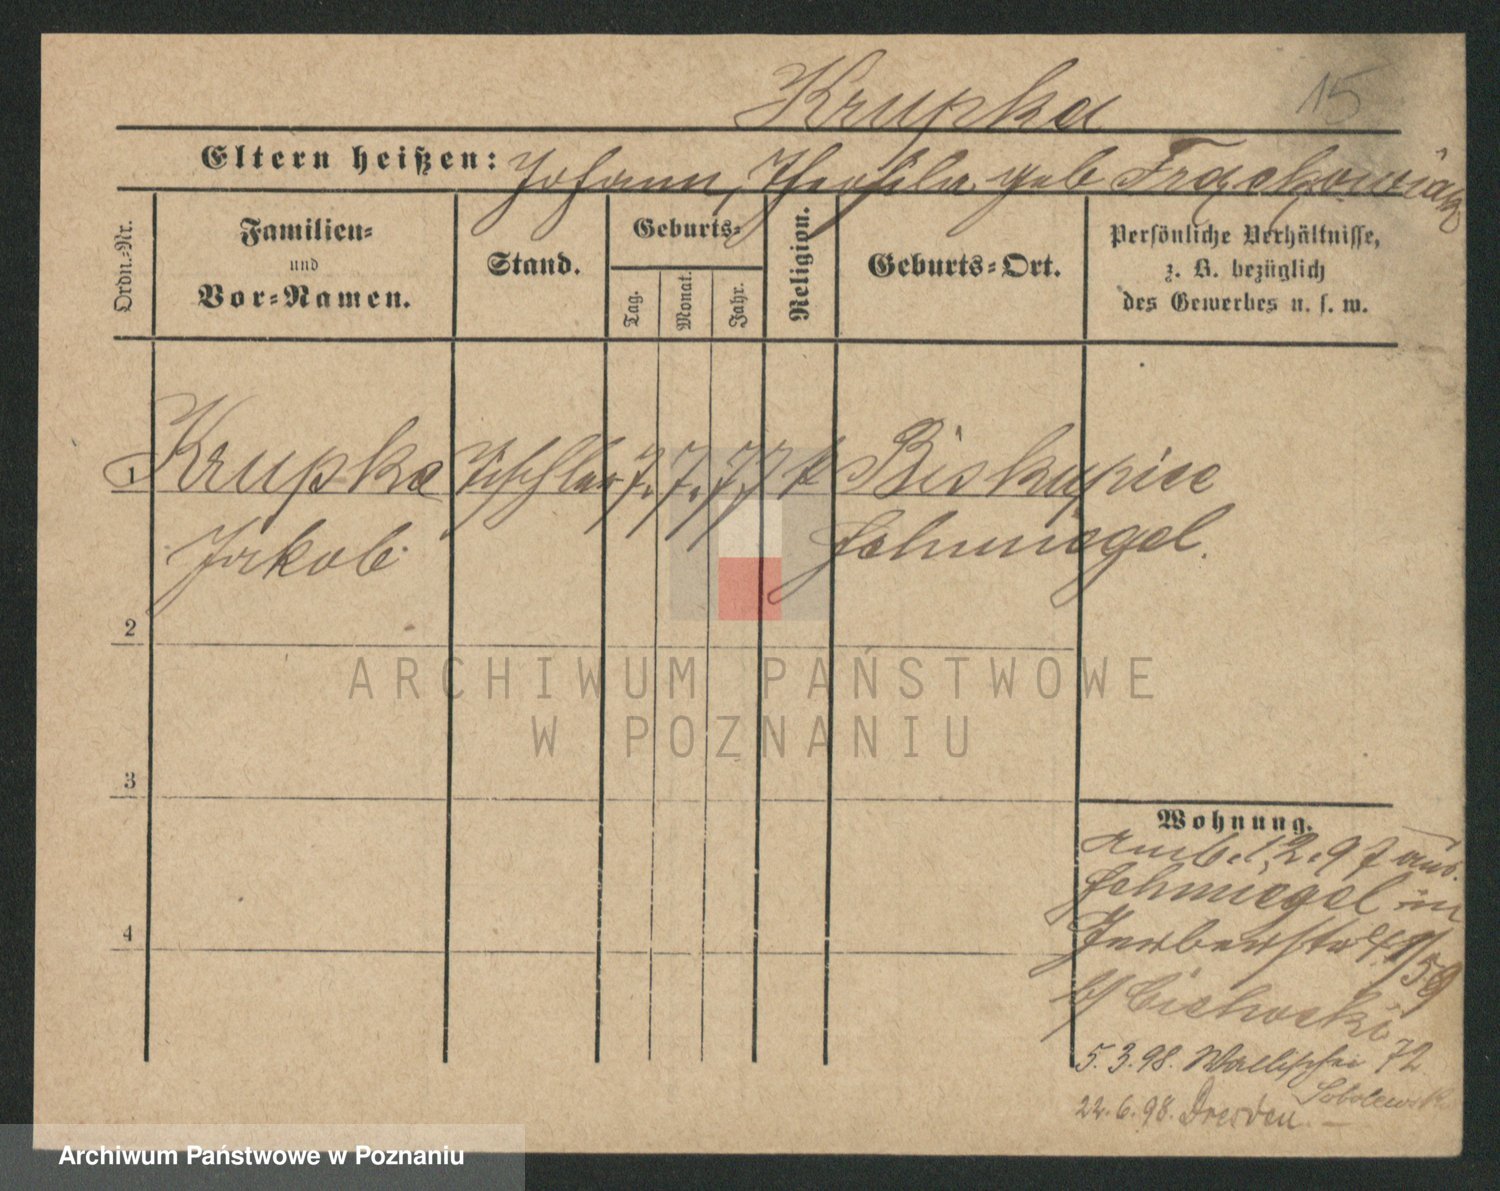 Krupka
15
Eltern heißen: Johann, Theophila geb Frąckowiak
Ordn.-Nr.
Familien-
und
Vor-Namen.
Stand.
Geburts-
Tag.
Monat.
Jahr.
Religion.
Geburts-Ort.
Persönliche Verhältnisse,
z. B. bezüglich
des Gewerbes u. s. w.
1 Krupka Tischler 7. 7. 77 k Biskupice
Jakob Schmiegel.
2
ARCHIWUM PAŃSTWOWE
W POZNANIU
3
Wohnung.
am 6.12.97 aus
Schmiegel in
4
b/ Cichocki
5.3.98. Wallischei 72
Sobolewski
22.6.98. Dresden
Archiwum Państwowe w Poznaniu